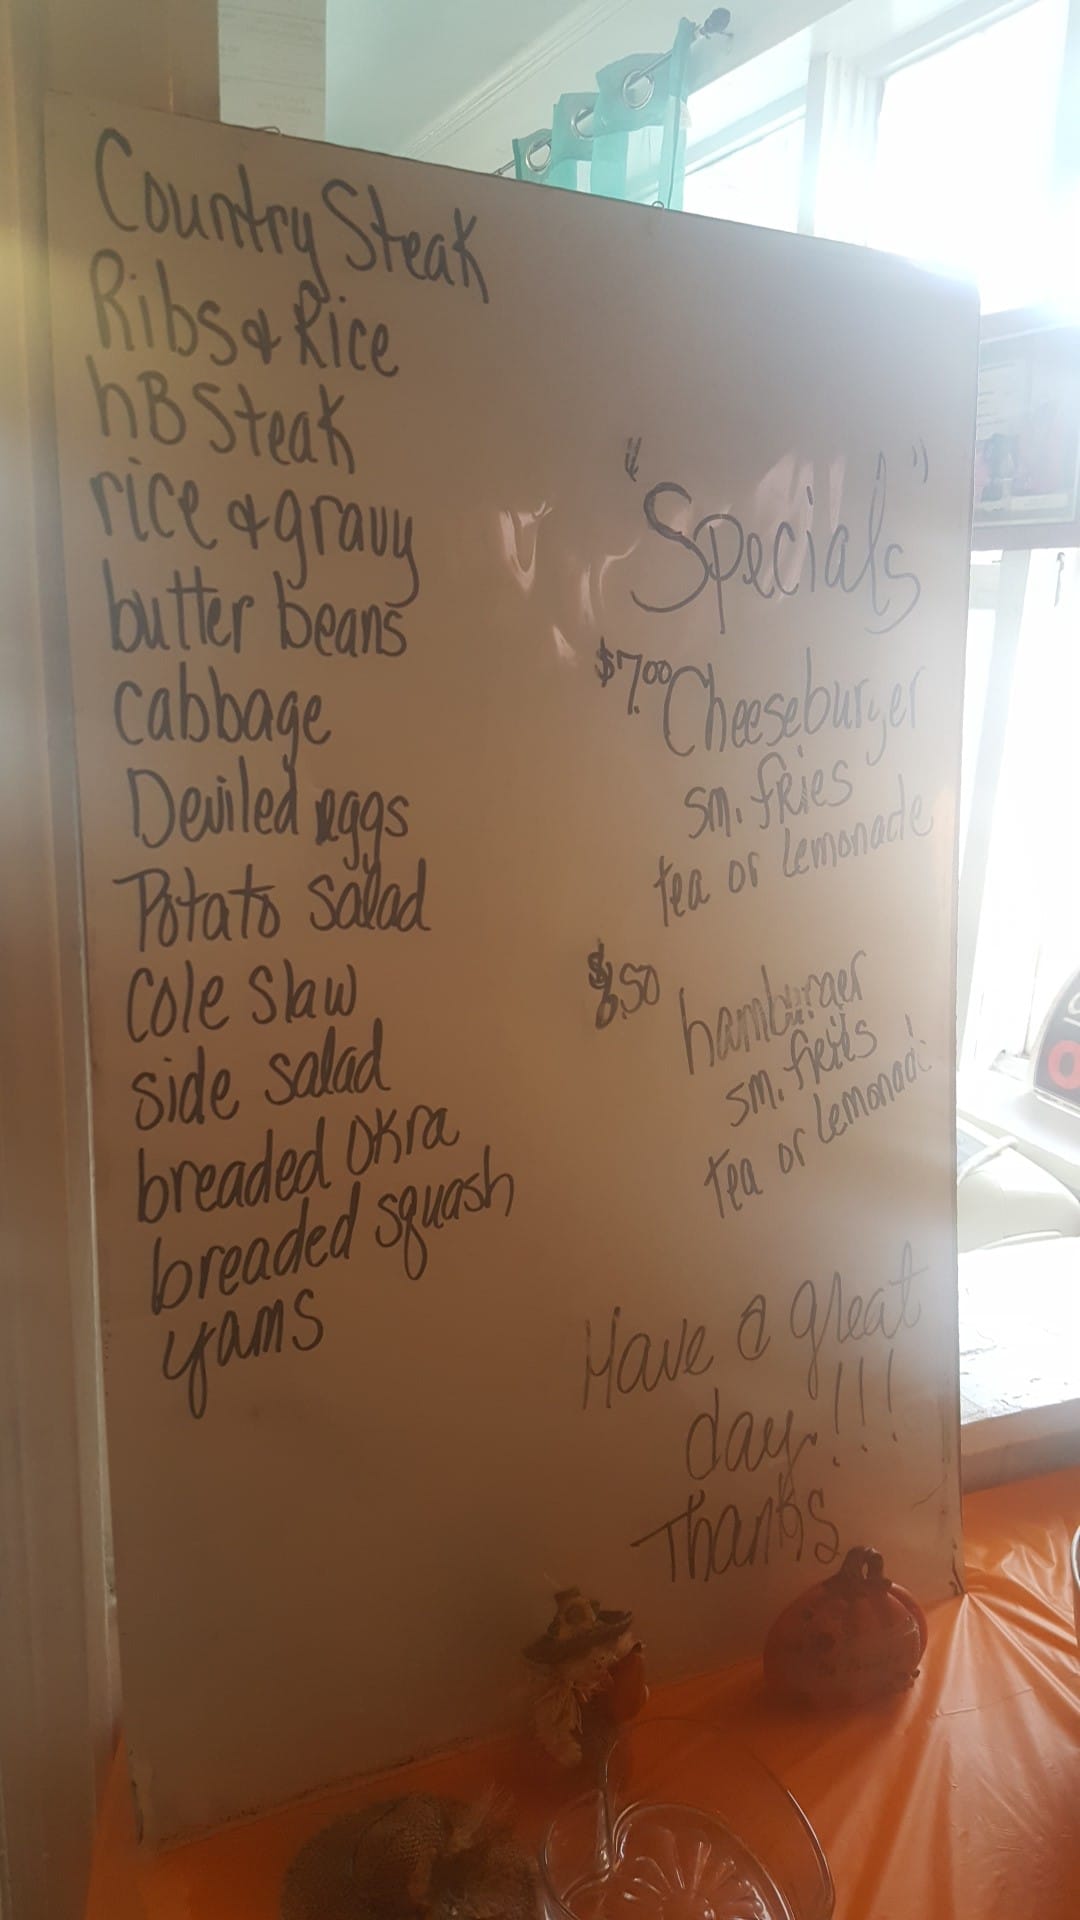 Country Steak
Ribs & Rice
hB Steak
rice & gravy
butter beans
cabbage
Deviled eggs
Potato salad
Cole Slaw
side salad
breaded OKra
breaded squash
yams
"Specials"
$7.00 Cheeseburger
sm. fRies
tea or Lemonade
hamburger
sm. fries
tea or Lemonade
Have a great
day!!!
Thanks